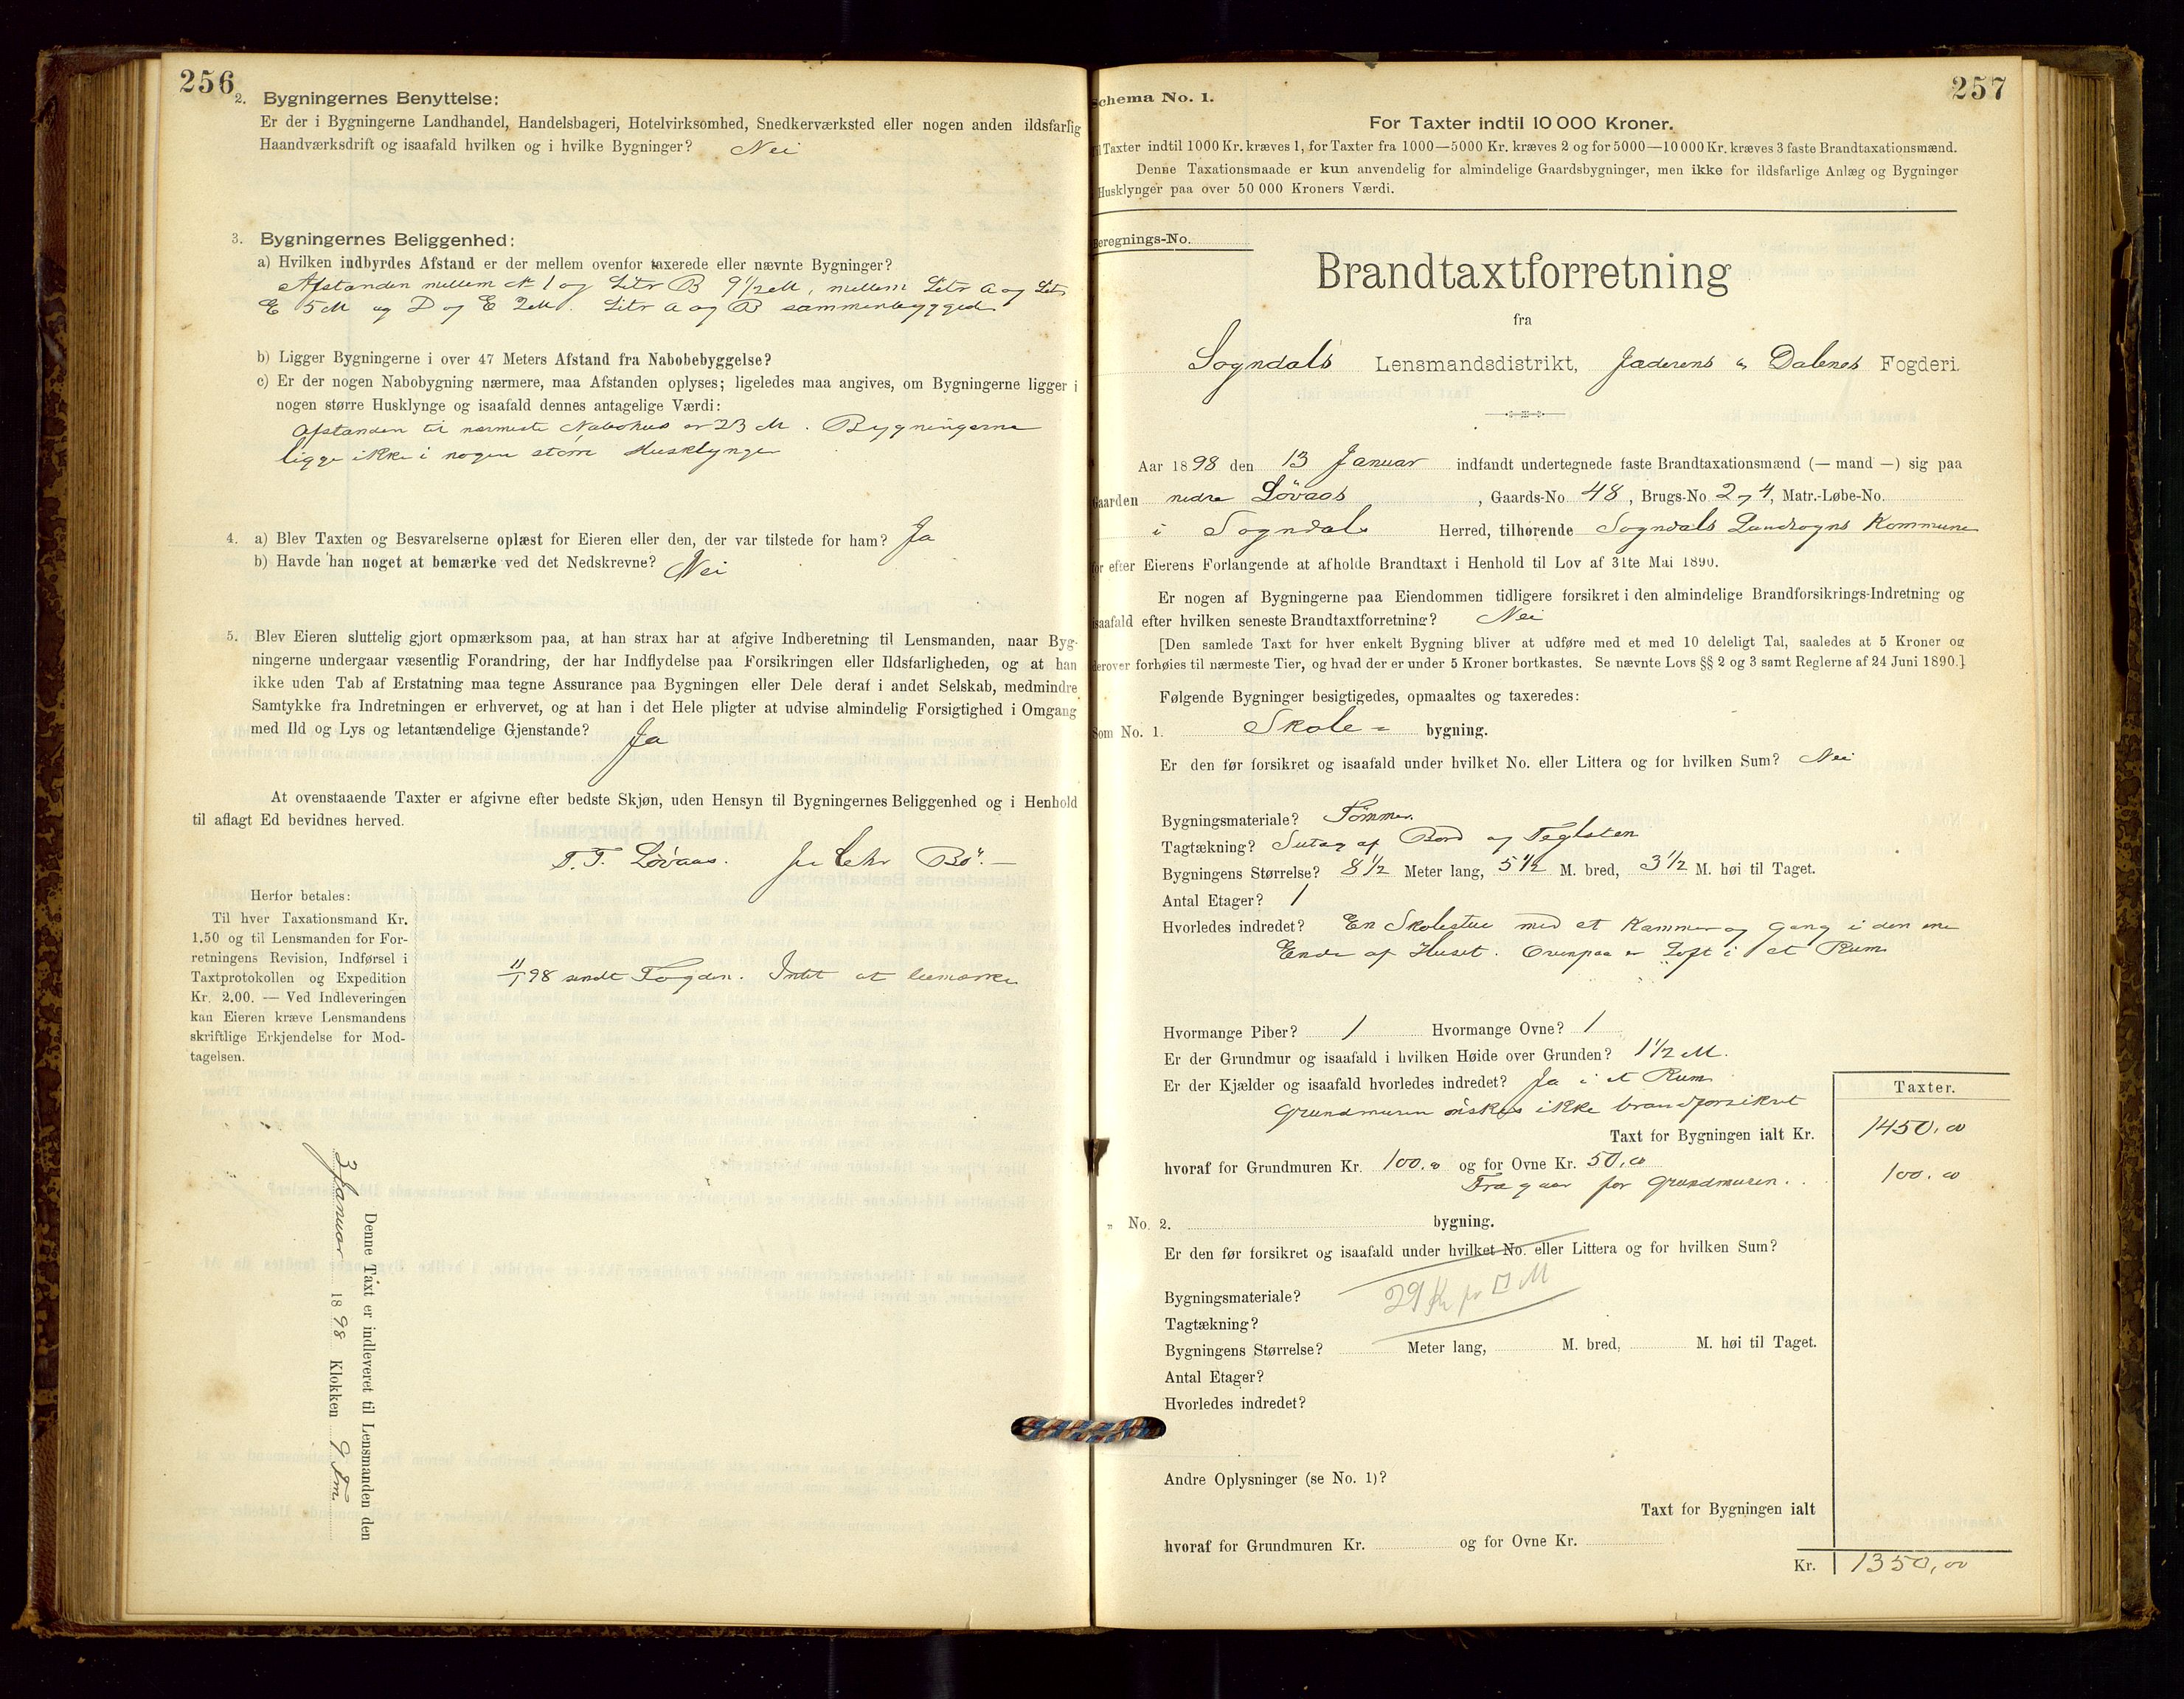 256
2. Bygningernes Benyttelse:
Er der i Bygningerne Landhandel, Handelsbageri, Hotelvirksomhed, Snedkerværksted eller nogen anden ildsfarlig
Haandværksdrift og isaafald hvilken og i hvilke Bygninger? Nei
3. Bygningernes Beliggenhed:
a) Hvilken indbyrdes Afstand er der mellem ovenfor taxerede eller nævnte Bygninger?
Afstanden mellem № 1 og Litr B 9½ M, mellem Litr A og Litr
E 5 M og D og E 2 M. Litr A og B sammenbygged
b) Ligger Bygningerne i over 47 Meters Afstand fra Nabobebyggelse?
c) Er der nogen Nabobygning nærmere, maa Afstanden oplyses; ligeledes maa angives, om Bygningerne ligger i
nogen større Husklynge og isaafald dennes antagelige Værdi:
Afstanden til nærmeste Nabohus er 23 M. Bygningerne
ligge ikke i nogen større Husklynge
4. a) Blev Taxten og Besvarelserne oplæst for Eieren eller den, der var tilstede for ham? Ja
b) Havde han noget at bemærke ved det Nedskrevne? Nei
5. Blev Eieren sluttelig gjort opmærksom paa, at han strax har at afgive Indberetning til Lensmanden, naar Byg-
ningerne undergaar væsentlig Forandring, der har Indflydelse paa Forsikringen eller Ildsfarligheden, og at han
ikke uden Tab af Erstatning maa tegne Assurance paa Bygningen eller Dele deraf i andet Selskab, medmindre
Samtykke fra Indretningen er erhvervet, og at han i det Hele pligter at udvise almindelig Forsigtighed i Omgang
med Ild og Lys og letantændelige Gjenstande? Ja
At ovenstaaende Taxter er afgivne efter bedste Skjøn, uden Hensyn til Bygningernes Beliggenhed og i Henhold
til aflagt Ed bevidnes herved.
T. T. Løvaas. Bö.
Herfor betales:
Til hver Taxationsmand Kr.
1.50 og til Lensmanden for For-
retningens Revision, Indførsel i
Taxtprotokollen og Expedition
Kr. 2.00. — Ved Indleveringen
kan Eieren kræve Lensmandens
skriftlige Erkjendelse for Mod-
tagelsen.
11/1 98 sendt Fogden. Intet at bemærke
Denne Taxt er indleveret til Lensmanden den
3 Januar 1898 Klokken 9 Fm.
257
Schema No. 1.
For Taxter indtil 10 000 Kroner.
Til Taxter indtil 1000 Kr. kræves 1, for Taxter fra 1000—5000 Kr. kræves 2 og for 5000—10000 Kr. kræves 3 faste Brandtaxationsmænd.
Denne Taxationsmaade er kun anvendelig for almindelige Gaardsbygninger, men ikke for ildsfarlige Anlæg og Bygninger
Husklynger paa over 50 000 Kroners Værdi.
Beregnings-No.
Brandtaxtforretning
fra
Sogndals Lensmandsdistrikt, Jæderens og Dalenes Fogderi.
Aar 1898 den 13 Januar indfandt undertegnede faste Brandtaxationsmænd (— mand —) sig paa
Gaarden nedre Lövaas, Gaards-No. 48, Brugs-No. 2 og 4, Matr.-Løbe-No.
i Sogndal Herred, tilhørende Sogndals Landsogns Kommune
for efter Eierens Forlangende at afholde Brandtaxt i Henhold til Lov af 31te Mai 1890.
Er nogen af Bygningerne paa Eiendommen tidligere forsikret i den almindelige Brandforsikrings-Indretning og
isaafald efter hvilken seneste Brandtaxtforretning? Nei
[Den samlede Taxt for hver enkelt Bygning bliver at udføre med et med 10 deleligt Tal, saaledes at 5 Kroner og
derover forhøies til nærmeste Tier, og hvad der er under 5 Kroner bortkastes. Se nævnte Lovs §§ 2 og 3 samt Reglerne af 24 Juni 1890.]
Følgende Bygninger besigtigedes, opmaaltes og taxeredes:
Som No. 1. Skole- bygning.
Er den før forsikret og isaafald under hvilket No. eller Littera og for hvilken Sum? Nei
Bygningsmateriale? Tömmer.
Tagtækning? Sutag af Bord og Teglsten
Bygningens Størrelse? 8½ Meter lang, 5½ M. bred, 3½ M. høi til Taget.
Antal Etager? 1
Hvorledes indredet? En Skolestue med et Kammer og Gang i den ene
Ende af Huset. Ovenpaa er Loft i et Rum
Hvormange Piber? 1 Hvormange Ovne? 1
Er der Grundmur og isaafald i hvilken Høide over Grunden? 1½ M.
Er der Kjælder og isaafald hvorledes indredet? Ja i et Rum
Grundmuren önskes ikke brandforsikret
Taxter.
Taxt for Bygningen ialt Kr. 1450,00
hvoraf for Grundmuren Kr. 100,00 og for Ovne Kr. 50,00
Fragaar for Grundmuren. 100,00
" No. 2. bygning.
Er den før forsikret og isaafald under hvilket No. eller Littera og for hvilken Sum?
29 Kr pr □ M
Bygningsmateriale?
Tagtækning?
Bygningens Størrelse? Meter lang, M. bred, M. høi til Taget.
Antal Etager?
Hvorledes indredet?
Andre Oplysninger (se No. 1)?
Taxt for Bygningen ialt
hvoraf for Grundmuren Kr. og for Ovne Kr.
Kr. 1350,00